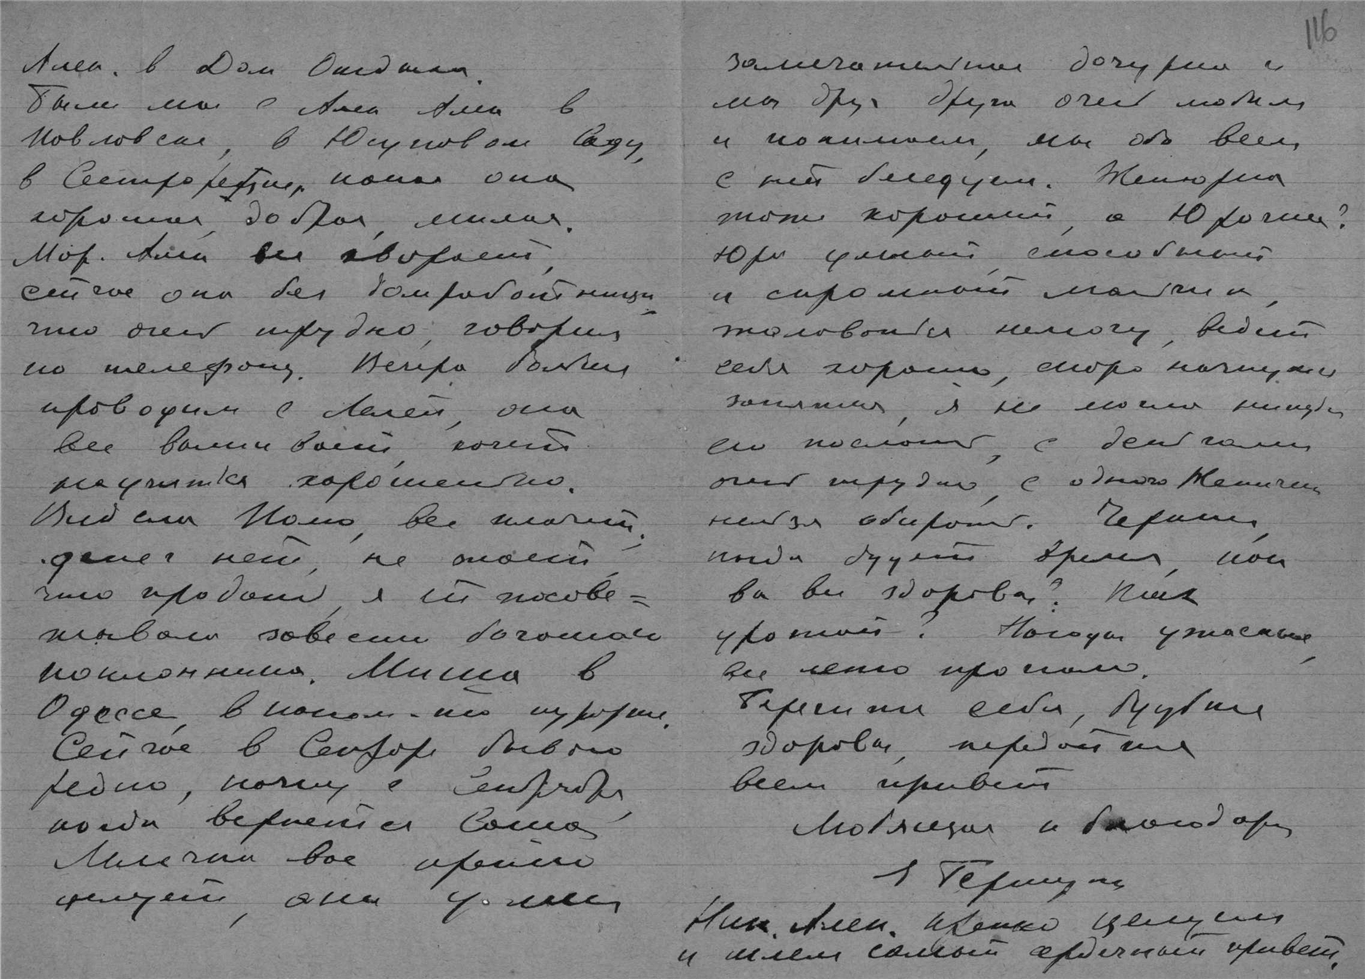 Ален. в Дом Отдыха.
Были мы с Анна Алек в
Павловске, в Юсуповом Саду,
в Сестрорецке, какая она
хорошая, добрая, милая.
Мар. Алек. все хворает,
сейчас она без домработницы
что очень трудно, говорим
по телефону. Вечера больше
проводим с Лелей, она
все вышивает, хочет
научиться хорошенько.
Видела Нома, все плачет,
денег нет, не знает,
что продать, я ей посове-
товала завести богатого
поклонника. Миша в
Одессе, в каком-то курорте.
Сейчас в Сенфоре бываю
редко, начну с Сентября,
когда вернется Саша
Милочка вас крепко
целует, она у меня
116
замечательная дочурка и
мы друг друга очень любим
и понимаем, мы обо всем
с ней беседуем. Женюрка
тоже хороший, а Юрочка?
Юра умный, способный
и скромный мальчик,
жаловаться немогу, ведет
себя хорошо, скоро начнутся
занятия, я не могла никуда
его послать, с деньгами
очень трудно, с одного Женички
нельзя обирать. Черкни,
когда будет время, как
вы все здоровы? Как
урожай? Погода ужасная,
все лето пропало.
Берегите себя, будьте
здоровы, передайте
всем привет
Любящая и благодарн
Ник. Ален. крепко целуем
и шлем самый сердечный привет.